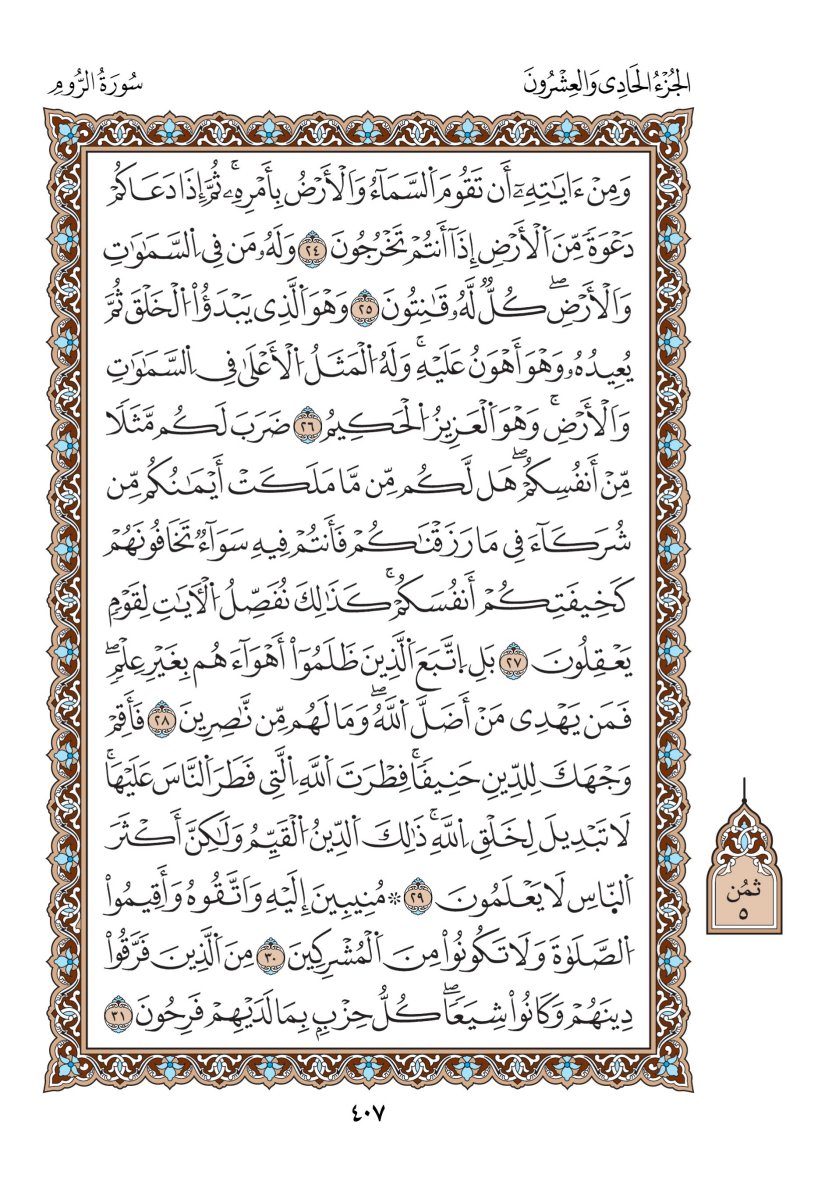 الجُزْءُ الحَادِى وَالعِشْرُونَ
سُورَةُ الرُّومِ
وَمِنْ ءَايَٰتِهِۦٓ أَن تَقُومَ اَ۬لسَّمَآءُ وَالْأَرْضُ بِأَمْرِهِۦۚ ثُمَّ إِذَا دَعَاكُمْ
دَعْوَةً مِّنَ اَ۬لْأَرْضِ إِذَآ أَنتُمْ تَخْرُجُونَ ٢٤ وَلَهُۥ مَن فِى اِ۬لسَّمَٰوَٰتِ
وَالْأَرْضِۖ كُلٌّ لَّهُۥ قَٰنِتُونَ ٢٥ وَهْوَ اَ۬لَّذِى يَبْدَؤُاْ اُ۬لْخَلْقَ ثُمَّ
يُعِيدُهُۥ وَهْوَ أَهْوَنُ عَلَيْهِۚ وَلَهُ اُ۬لْمَثَلُ اُ۬لْأَعْلَىٰ فِى اِ۬لسَّمَٰوَٰتِ
وَالْأَرْضِۚ وَهْوَ اَ۬لْعَزِيزُ اُ۬لْحَكِيمُ ٢٦ ضَرَبَ لَكُم مَّثَلًا
مِّنْ أَنفُسِكُمْۖ هَل لَّكُم مِّن مَّا مَلَكَتْ أَيْمَٰنُكُم مِّن
شُرَكَآءَ فِى مَا رَزَقْنَٰكُمْ فَأَنتُمْ فِيهِ سَوَآءٌ تَخَافُونَهُمْ
كَخِيفَتِكُمْ أَنفُسَكُمْۚ كَذَٰلِكَ نُفَصِّلُ اُ۬لْأٓيَٰتِ لِقَوْمٍ
يَعْقِلُونَ ٢٧ بَلِ اِ۪تَّبَعَ اَ۬لَّذِينَ ظَلَمُوٓاْ أَهْوَآءَهُم بِغَيْرِ عِلْمٍۖ
فَمَن يَهْدِى مَنْ أَضَلَّ اَ۬للَّهُۖ وَمَا لَهُم مِّن نَّٰصِرِينَ ٢٨ فَأَقِمْ
وَجْهَكَ لِلدِّينِ حَنِيفًاۚ فِطْرَتَ اَ۬للَّهِ اِ۬لَّتِى فَطَرَ اَ۬لنَّاسَ عَلَيْهَاۚ
لَا تَبْدِيلَ لِخَلْقِ اِ۬للَّهِۚ ذَٰلِكَ اَ۬لدِّينُ اُ۬لْقَيِّمُ وَلَٰكِنَّ أَكْثَرَ
اَ۬لنَّاسِ لَا يَعْلَمُونَ ٢٩ ۞ مُنِيبِينَ إِلَيْهِ وَاتَّقُوهُ وَأَقِيمُواْ
اُ۬لصَّلَوٰةَ وَلَا تَكُونُواْ مِنَ اَ۬لْمُشْرِكِينَ ٣٠ مِنَ اَ۬لَّذِينَ فَرَّقُواْ
دِينَهُمْ وَكَانُواْ شِيَعًاۖ كُلُّ حِزْبٍۭ بِمَا لَدَيْهِمْ فَرِحُونَ ٣١
ثمُن
٥
٤٠٧